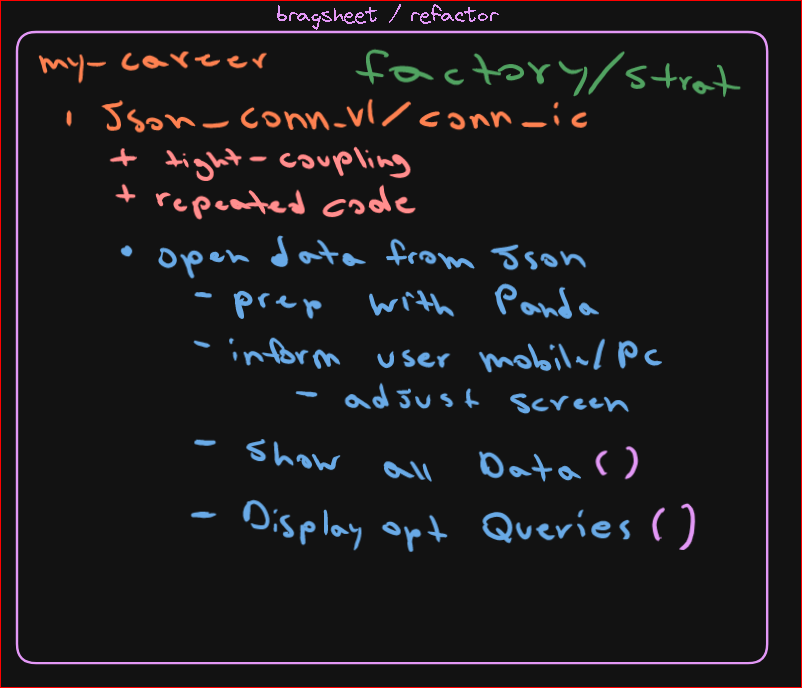 bragsheet / refactor
my-career factory/strat
Json_conn_v1/conn_ic
+ tight-coupling
+ repeated code
• open data from Json
- prep with Panda
- inform user mobile/PC
- adjust screen
- Show all Data()
- Display opt Queries()